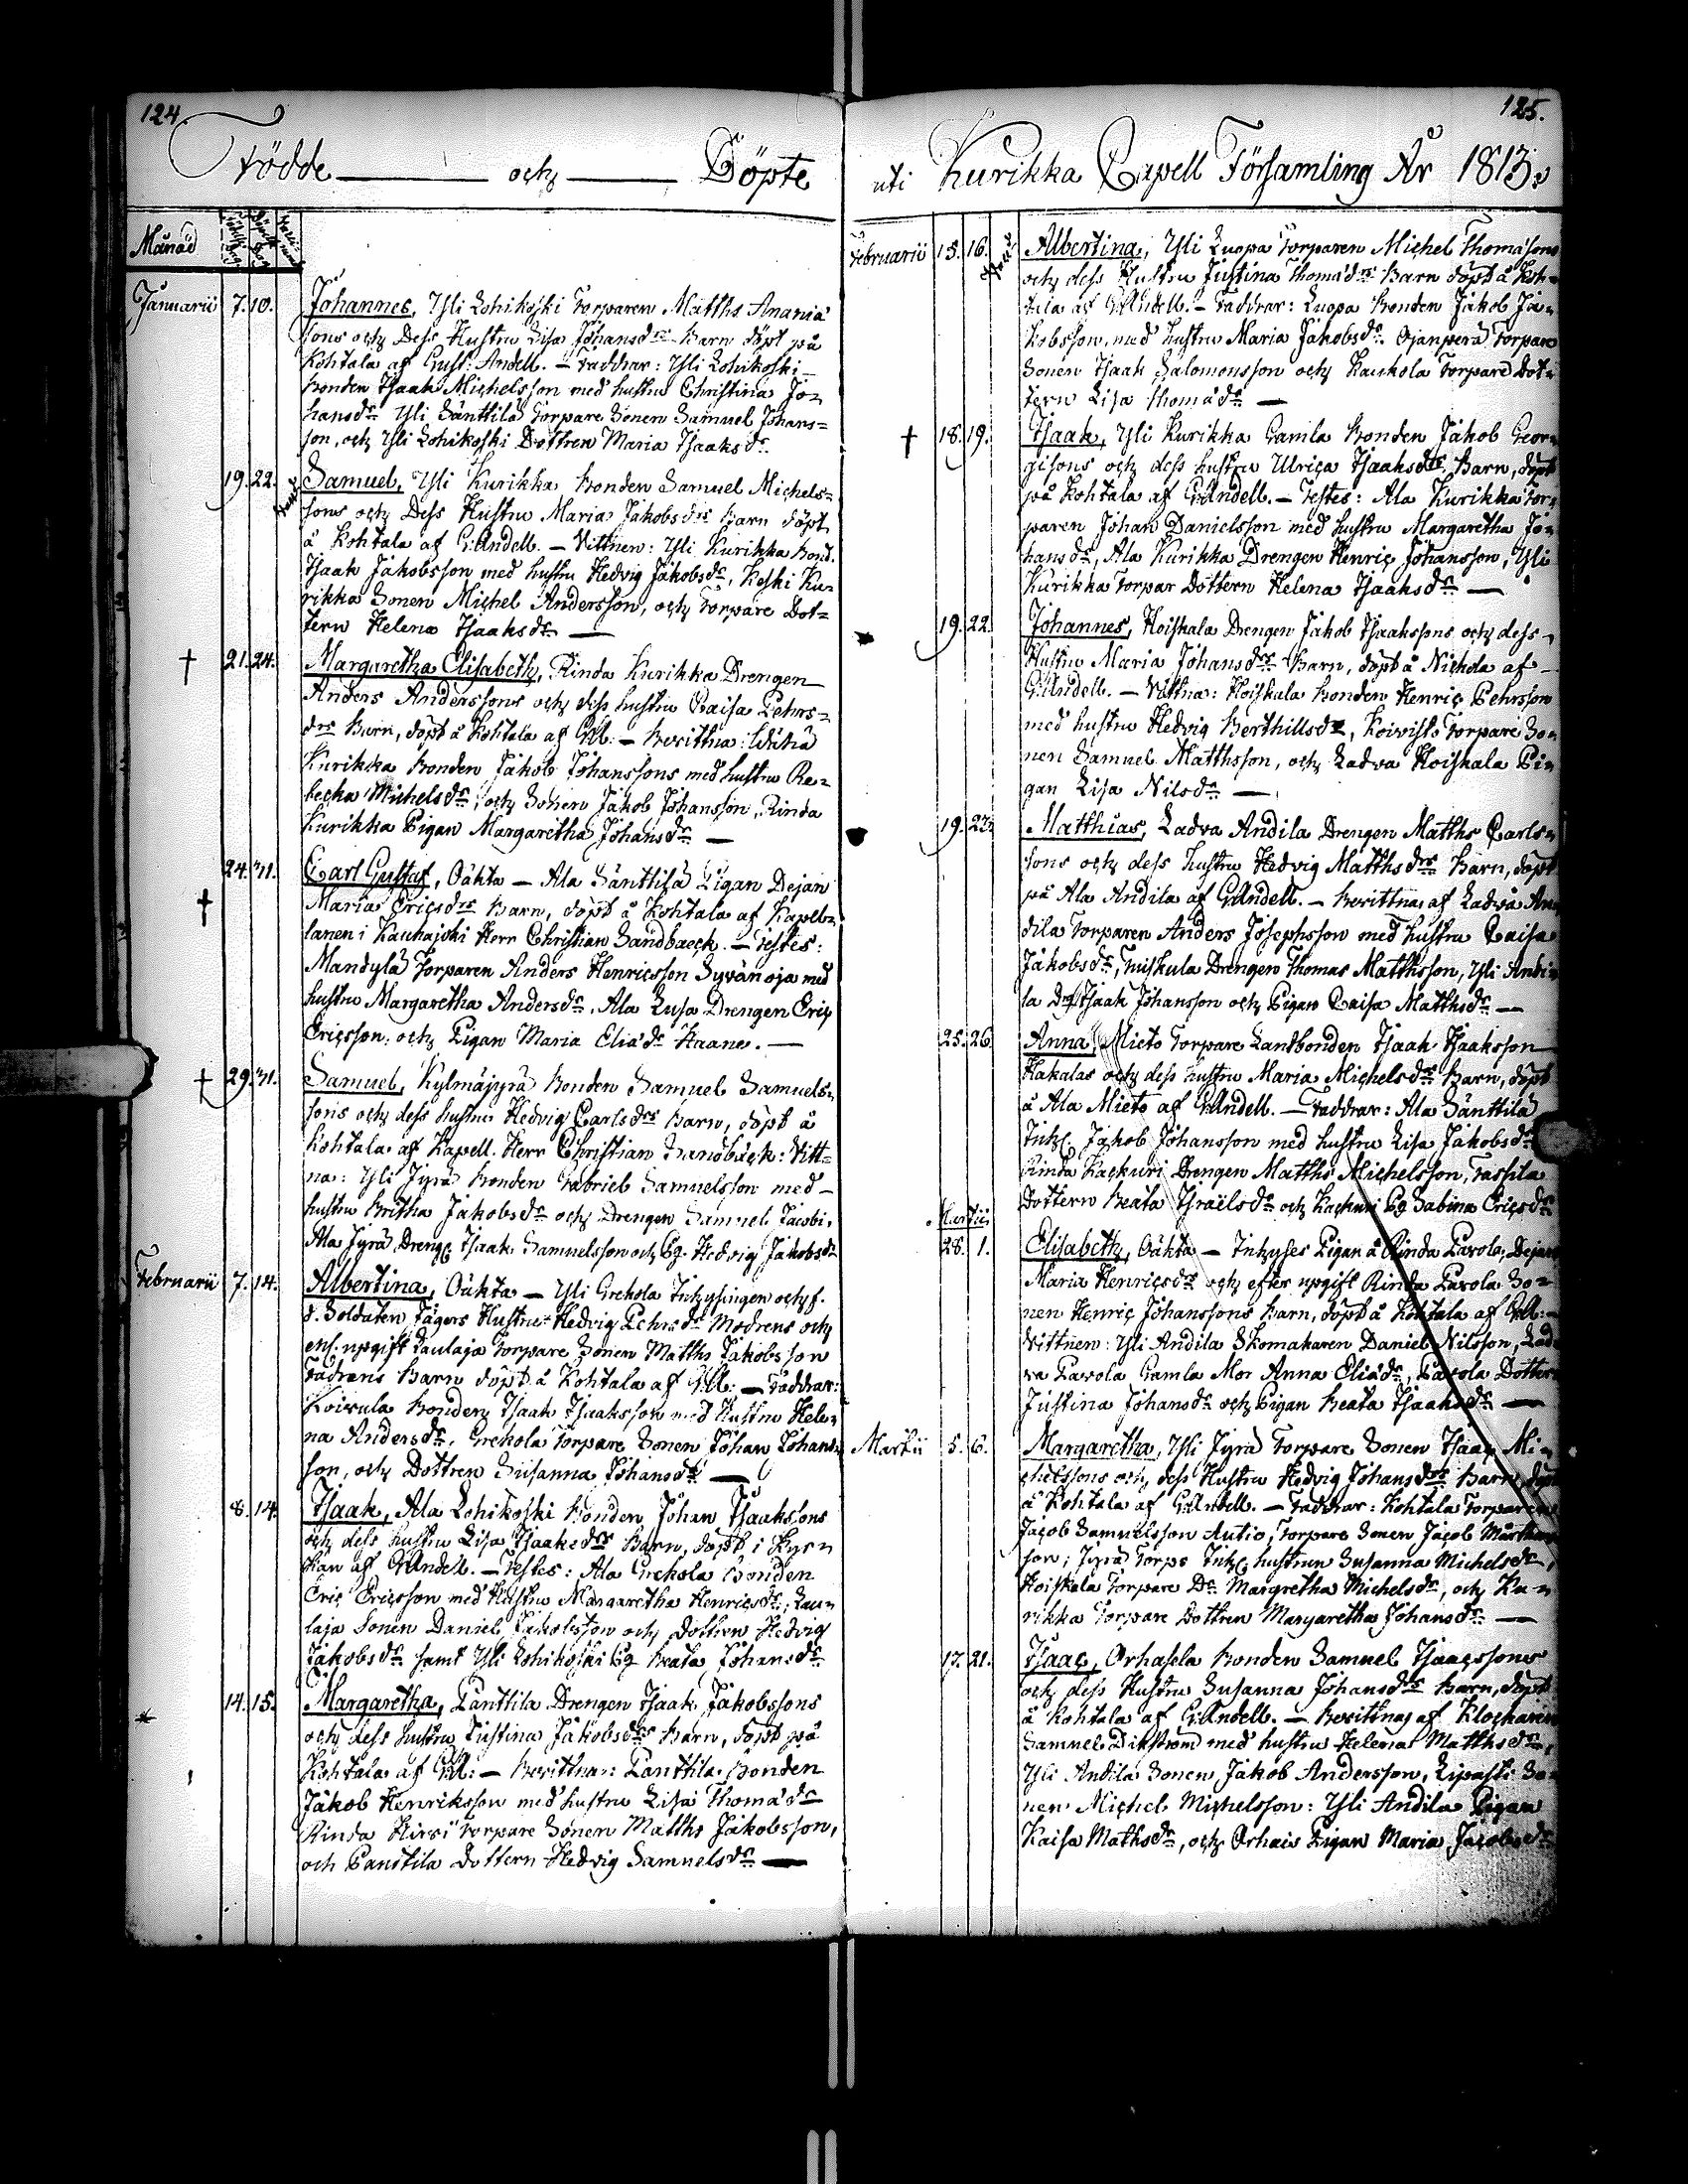 124.
Födde och Döpte
Månad
Januarii 7. 10. Johannes, Yli Lohikoski Torparen Matths Anania
sons och Dess Hustru Lisa Johansdrs Barn döpt på
Kohtala af Gust: Andell. – Faddrar: Yli Lohikoski
Bonden Isaak Michelsson med hustru Christina Jo=
hansdr Yli Sänttilä Torpare Sonen Samuel Johans=
son, och Yli Lohikoski Dottren Maria Isaaksdr.
19. 22. Samuel, Yli Kurikka Bonden Samuel Michels=
sons och Dess Hustru Maria Jakobsdrs Barn döpt
å Kohtala af G:Andell. – Vittnen: Yli Kurikka Bond.
Isaak Jakobsson med hustru Hedvig Jakobsdr, Keski Ku=
rikka Sonen Michel Andersson, och Torpare Dot=
tern Helena Isaaksdr –
† 21. 24. Margaretha Elisabeth, Rinda Kurikka Drengen
Anders Anderssons och dess hustru Caisa Pehrs=
drs Barn, döpt å Kohtala af GAll: – Bevittna:
Kurikka Bonden Jakob Johanssons med hustru Re=
becka Michelsdr, och Sonen Jakob Johansson, Rinda
Kurikka Pigan Margaretha Johansdr –
† 24. 31. Carl Gustaf, Oäkta – Ala Sänttilä Pigan Dejan
Maria Ericsdrs Barn, döpt å Kohtala af Kapel=
lanen i Kauhajoki Herr Christian Sandbaeck. – Testes:
Mandylä Torparen Anders Henricsson Syvänoja med
hustru Margaretha Andersdr, Ala Lusa Drengen Eric
Ericsson, och Pigan Maria Eliædr Haane. –
† 29. 31. Samuel, Kylmäjyrä Bonden Samuel Samuels=
sons och dess hustru Hedvig Carlsdrs Barn, döpt å
Kohtala af Kapell. Herr Christian Sandbäck: Vitt=
na: Yli Jyrä Bonden Gabriel Samuelsson med
hustru Britha Jakobsdr och Drengen Samuel Jacobi,
Ala Jyrä Dreng: Isaak Samuelsson och Pg. Hedvig Jakobsdr
Februarii 7. 14. Albertina, Oäkta – Yli Grekola Inhysingen och f.
d. Soldaten Jägers Hustru Hedvig Pehrsdr Modrens och
enl. upgift Laulaja Torpare Sonen Matths Jakobsson
Fadrens Barn döpt å Kohtala af GAll: – Faddrar:
Koivula Bonden Isaak Isaaksson med Hustru Hele=
na Andersdr, Grekola Torpare Sonen Johan Johans=
son, och Dottren Susanna Johansdr –
8. 14. Isaak, Ala Lohikoski Bonden Johan Isaakssons
och dess hustru Lisa Isaaksdrs Barn, döpt i Kyr=
kan af G:Andell. – Testes: Ala Grekola Bonden
Eric Ericsson med Hustru Margaretha Henricsdr, Lau=
laja Sonen Daniel Jakobsson och Dottern Hedvig
Jakobsdr samt Yli Lohikoski Pg Beata Johansdr
14. 15. Margaretha, Panttila Drengen Isaak Jakobssons
och dess hustru Justina Jakobsdrs Barn, döpt på
Kohtala af GAll: – Bevittna: Panttila Bonden
Jakob Henriksson med hustru Lisa Thomædr
Rinda Hirvi Torpare Sonen Matths Jakobsson,
och Panttila Dottern Hedvig Samuelsdr –
125.
uti Kurikka Capell Församling År 1813.
Februarii 15. 16. Albertina, Yli Luopa Torparen Michel Thomæsons
och dess Hustru Justina Thomædrs Barn döpt å Koh=
tala af G:Andell. – Faddrar: Luopa Bonden Jakob Ja=
kobsson, med hustru Maria Jakobsdr. Ojanperä Torpare
Sonen Isaak Salomonsson och Kaukola Torpare Dot=
tern Lisa Thomædr –
† 18. 19. Isaak, Yli Kurikka Gamla Bonden Jakob Geor=
gisons och dess hustru Ulrica Isaaksdrs Barn, döpt
på Kohtala af G:Andell. – Testes: Ala Kurikka Tor=
paren Johan Danielsson med hustru Margaretha Jo=
hansdr, Ala Kurikka Drengen Henric Johansson, Yli
Kurikka Torpar Dottern Helena Isaaksdr –
19. 22. Johannes, Koiskala Drengen Jakob Isaakssons och dess
Hustru Maria Johansdrs Barn, döpt å Nickola af
G:Andell. – Vittna: Koiskala Bonden Henric Pehrsson
med hustru Hedvig Berthillsdr, Koivisto Torpare So=
nen Samuel Matthsson, och Ladva Koiskala Pi=
gan Lisa Nilsdr –
19. 22. Matthias, Ladva Andila Drengen Matths Carls=
sons och dess hustru Hedvig Matthsdrs Barn, döpt
på Ala Andila af G:Andell. – Bevittnas af Ladva An
dila Torparen Anders Josephsson med hustru Caisa
Jakobsdr, Tuiskula Drengen Thomas Matthsson, Yli Andi=
la Dr. Isaak Johansson och Pigan Caisa Matthsdr –
25. 26. Anna, Mieto Torpare Lantbonden Isaak Isaaksson
Hakalas och dess hustru Maria Michelsdrs Barn, döpt
å Ala Mieto af G:Andell. – Faddrar: Ala Sänttilä
Inhs. Jakob Johansson med hustru Lisa Jakobsdr
Rinda Kackuri Drengen Matths Michelsson, Tassila
Dottern Beata Israelsdr och Kackuri Pg Sabina Ericsdr
Martii
28. 1. Elisabeth, Oäkta – Inhyses Pigan å Rinda Pavola, Dejan
Maria Henricsdr och efter upgift Rinda Pavola So=
nen Henric Johanssons Barn, döpt å Kohtala af GAll: –
Vittnen: Yli Andila Skomakaren Daniel Nilsson, Lad
va Pavola Gamla Mor Anna Eliædr, Pavola Dotter
Justina Johansdr och Pigan Beata Isaaksdr –
Martii 5. 6. Margaretha, Yli Jyrä Torpare Sonen Isaac Mi=
chelssons och dess Hustru Hedvig Johansdrs Barn, döpt
å Kohtala af G:Andell. – Faddrar: Kohtala Torparen
Jacob Samuelsson Autio, Torpare Sonen Jacob
son, Jyrä Torps Inhs: hustrun Susanna Michelsdr,
Koiskala Torpare Dr Margretha Michelsdr, och Ku=
rikka Torpare Dottren Margaretha Johansdr –
17. 21. Isaac, Orhasela Bonden Samuel Isaacssons
och dess Hustru Susanna Johansdrs Barn, döpt
å Kohtala af G:Andell. – Bevittnas af Klockaren
Samuel Dikström med hustru Helena Matthsdr,
Yli Andila Sonen Jakob Andersson, Lipasti So=
nen Michel Michelsson: Yli Andila Pigan
Kaisa Mathsdr, och Orhais Pigan Maria Jacobsdr